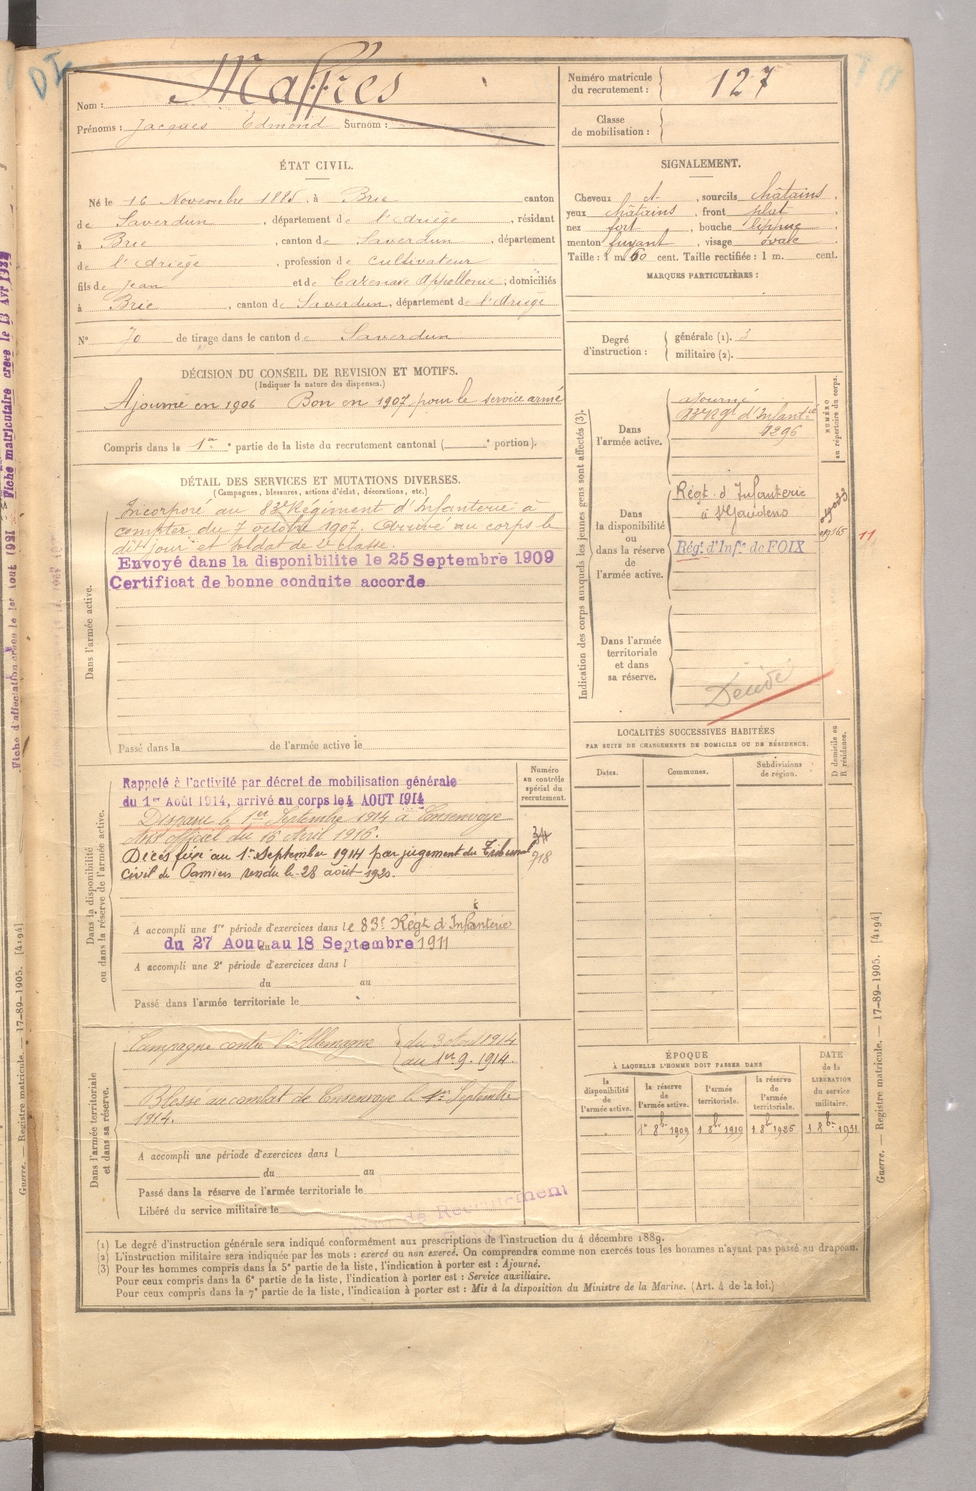 Nom : Maffres
Prénoms : Jacques Edmond Surnom :
Numéro matricule du recrutement : 127
Classe de mobilisation :
ÉTAT CIVIL.
Né le 16 Novembre 1885, à Brie canton
de Saverdun, département de l'Ariège, résidant
à Brie, canton de Saverdun, département
de l'Ariège, profession de cultivateur
fils de Jean et de Appollonie, domiciliés
à Brie, canton de Saverdun, département de l'Ariège
N° 70 de tirage dans le canton de Saverdun
SIGNALEMENT.
Cheveux , sourcils châtains,
yeux châtains, front plat,
nez fort, bouche lippue,
menton fuyant, visage ovale
Taille : 1 m. 60 cent. Taille rectifiée : 1 m. cent.
MARQUES PARTICULIÈRES :
Degré d'instruction :
générale (1). 3
militaire (2).
DÉCISION DU CONSEIL DE REVISION ET MOTIFS.
(Indiquer la nature des dispenses.)
Ajourné en 1906 Bon en 1907 pour le service armé
Compris dans la 1re partie de la liste du recrutement cantonal ( e portion).
DÉTAIL DES SERVICES ET MUTATIONS DIVERSES.
(Campagnes, blessures, actions d'éclat, décorations, etc.)
Dans l'armée active.
Incorporé au 83e Régiment d'Infanterie à
compter du 7 octobre 1907. Arrivé au corps le
dit jour et soldat de 2e classe.
Envoyé dans la disponibilite le 25 Septembre 1909
Certificat de bonne conduite accorde
Passé dans la de l'armée active le
Indication des corps auxquels les jeunes gens sont affectés (3).
NUMÉRO au répertoire du corps.
Dans l'armée active.
Ajourné
83e Rgt d'Infantie
7296
Dans la disponibilité ou dans la réserve de l'armée active.
Régt. d'Infanterie
à St Gaudens
Régt. d'Infie de FOIX
11
Dans l'armée territoriale et dans sa réserve.
Décédé
LOCALITÉS SUCCESSIVES HABITÉES
PAR SUITE DE CHANGEMENTS DE DOMICILE OU DE RÉSIDENCE.
Dates. Communes. Subdivisions de région. D domicile ou R résidence.
Dans la disponibilité ou dans la réserve de l'armée active.
Numéro au contrôle spécial du recrutement.
Rappelé à l'activité par décret de mobilisation générale
du 1er Août 1914, arrivé au corps le 4 AOUT 1914
Disparu le 1er Septembre 1914 à Consenvoye
Avis officiel du 16 Avril 1916.
Décès fixé au 1er Septembre 1914 par jugement du Tribunal
Civil de Pamiers rendu le 28 août 1920.
34
918
A accompli une 1re période d'exercices dans le 83e Régt d'Infanterie
du 27 Aout au 18 Septembre 1911
A accompli une 2e période d'exercices dans l
du au
Passé dans l'armée territoriale le
Dans l'armée territoriale et dans sa réserve.
Campagne contre l'Allemagne du 3 Aout 1914
au 1er 9. 1914.
Blessé au combat de Consenvoye le 1er Septembre
1914.
A accompli une période d'exercices dans l
du au
Passé dans la réserve de l'armée territoriale le
Libéré du service militaire le
de Recrutement
ÉPOQUE
À LAQUELLE L'HOMME DOIT PASSER DANS
la disponibilité de l'armée active. la réserve de l'armée active. l'armée territoriale. la réserve de l'armée territoriale.
DATE de la LIBÉRATION du service militaire.
1er 8bre 1909 1 8bre 1919 1 8bre 1925 1 8bre 1931
(1) Le degré d'instruction générale sera indiqué conformément aux prescriptions de l'instruction du 4 décembre 1889.
(2) L'instruction militaire sera indiquée par les mots : exercé ou non exercé. On comprendra comme non exercés tous les hommes n'ayant pas passé au drapeau.
(3) Pour les hommes compris dans la 5e partie de la liste, l'indication à porter est : Ajourné.
Pour ceux compris dans la 6e partie de la liste, l'indication à porter est : Service auxiliaire.
Pour ceux compris dans la 7e partie de la liste, l'indication à porter est : Mis à la disposition du Ministre de la Marine. (Art. 4 de la loi.)
Guerre. — Registre matricule. — 17-89-1905. [4194]